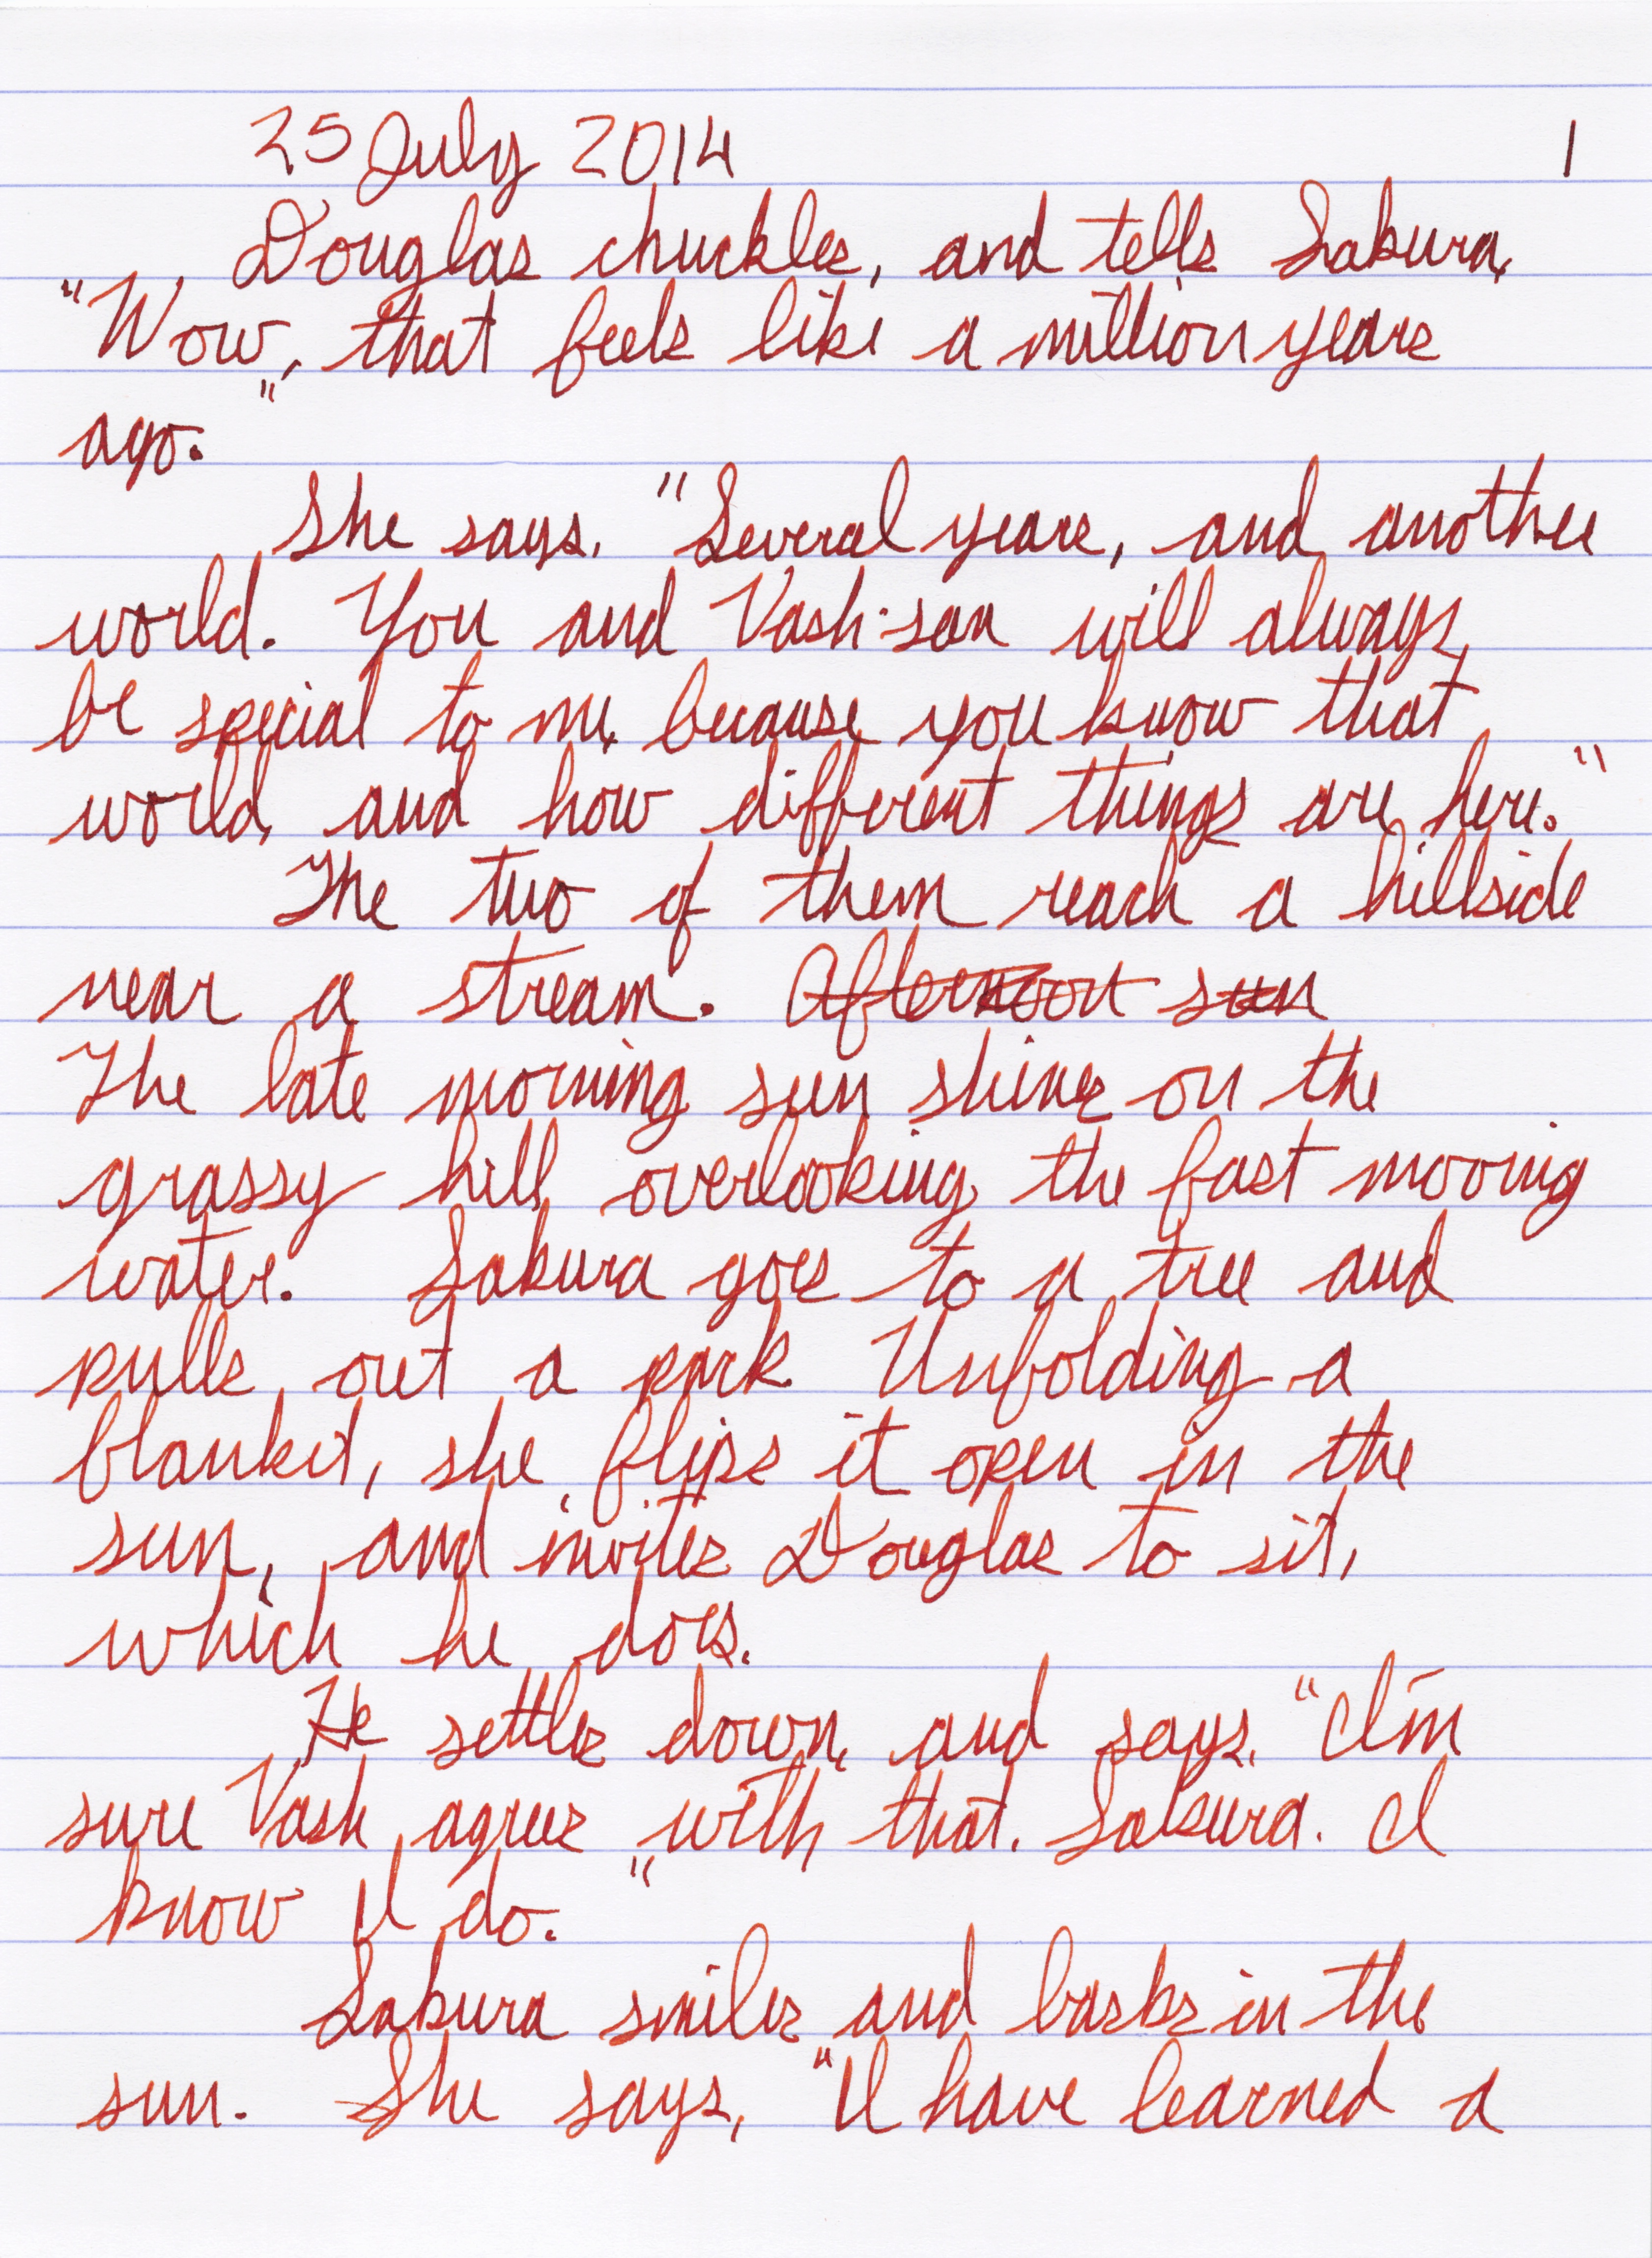 25 July 2014 1
Douglas chuckles, and tells Sakura,
"Wow, that feels like a million years
ago."
She says, "Several years, and another
world. You and Vash-san will always
be special to me, because you know that
world, and how different things are here."
The two of them reach a hillside
near a stream. Afternoon sun
The late morning sun shines on the
grassy hill, overlooking the fast moving
water. Sakura goes to a tree and
pulls out a pack. Unfolding a
blanket, she flips it open in the
sun, and invites Douglas to sit,
which he does.
He settles down, and says, "I'm
sure Vash agrees with that, Sakura. I
know I do."
Sakura smiles and basks in the
sun. She says, "I have learned a